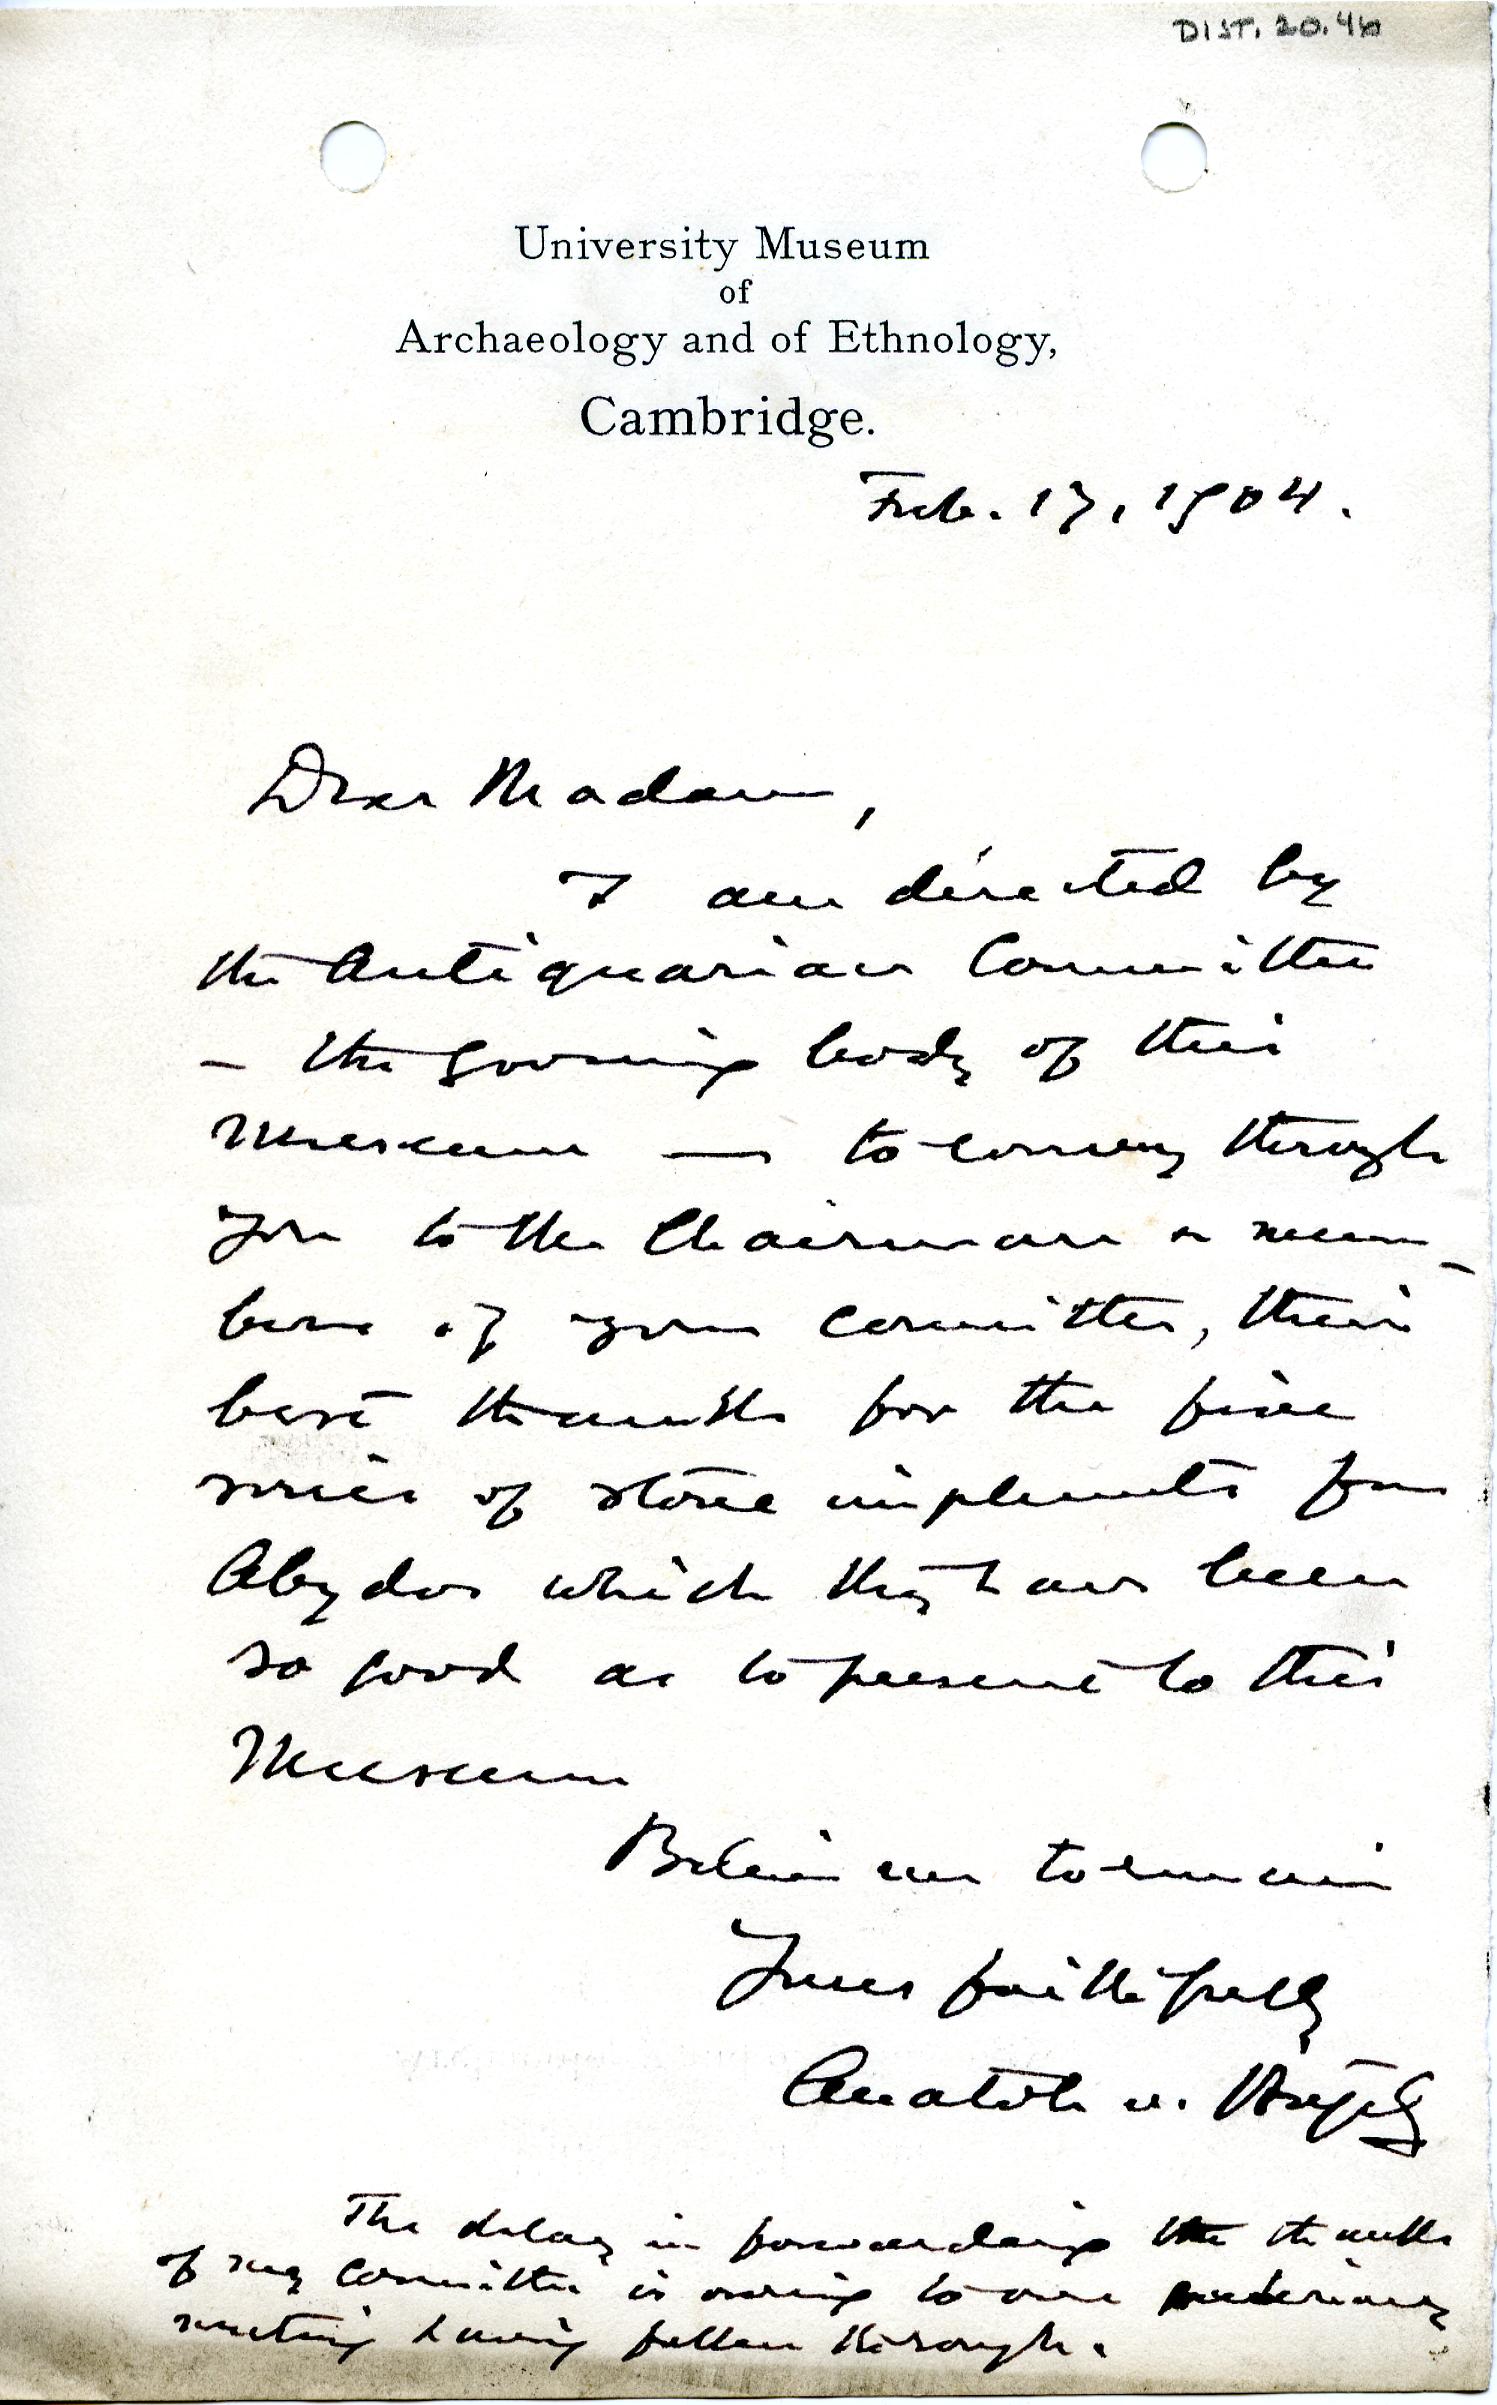 DIST. 20.46
University Museum
of
Archaeology and of Ethnology,
Cambridge.
Feb. 17, 1904.
Dear Madam,
I am directed by
the Antiquarian Committee
– the governing body of this
Museum — to convey through
you to the Chairman &
bers of your Committee, their
best thanks for the fine
series of stone implements from
Abydos which they have been
so good as to present to this
Museum
Believe me to remain
Yours faithfully
Anatole v. Hügel
The delay in forwarding the thanks
of my Committee is owing to one
meeting having fallen through.